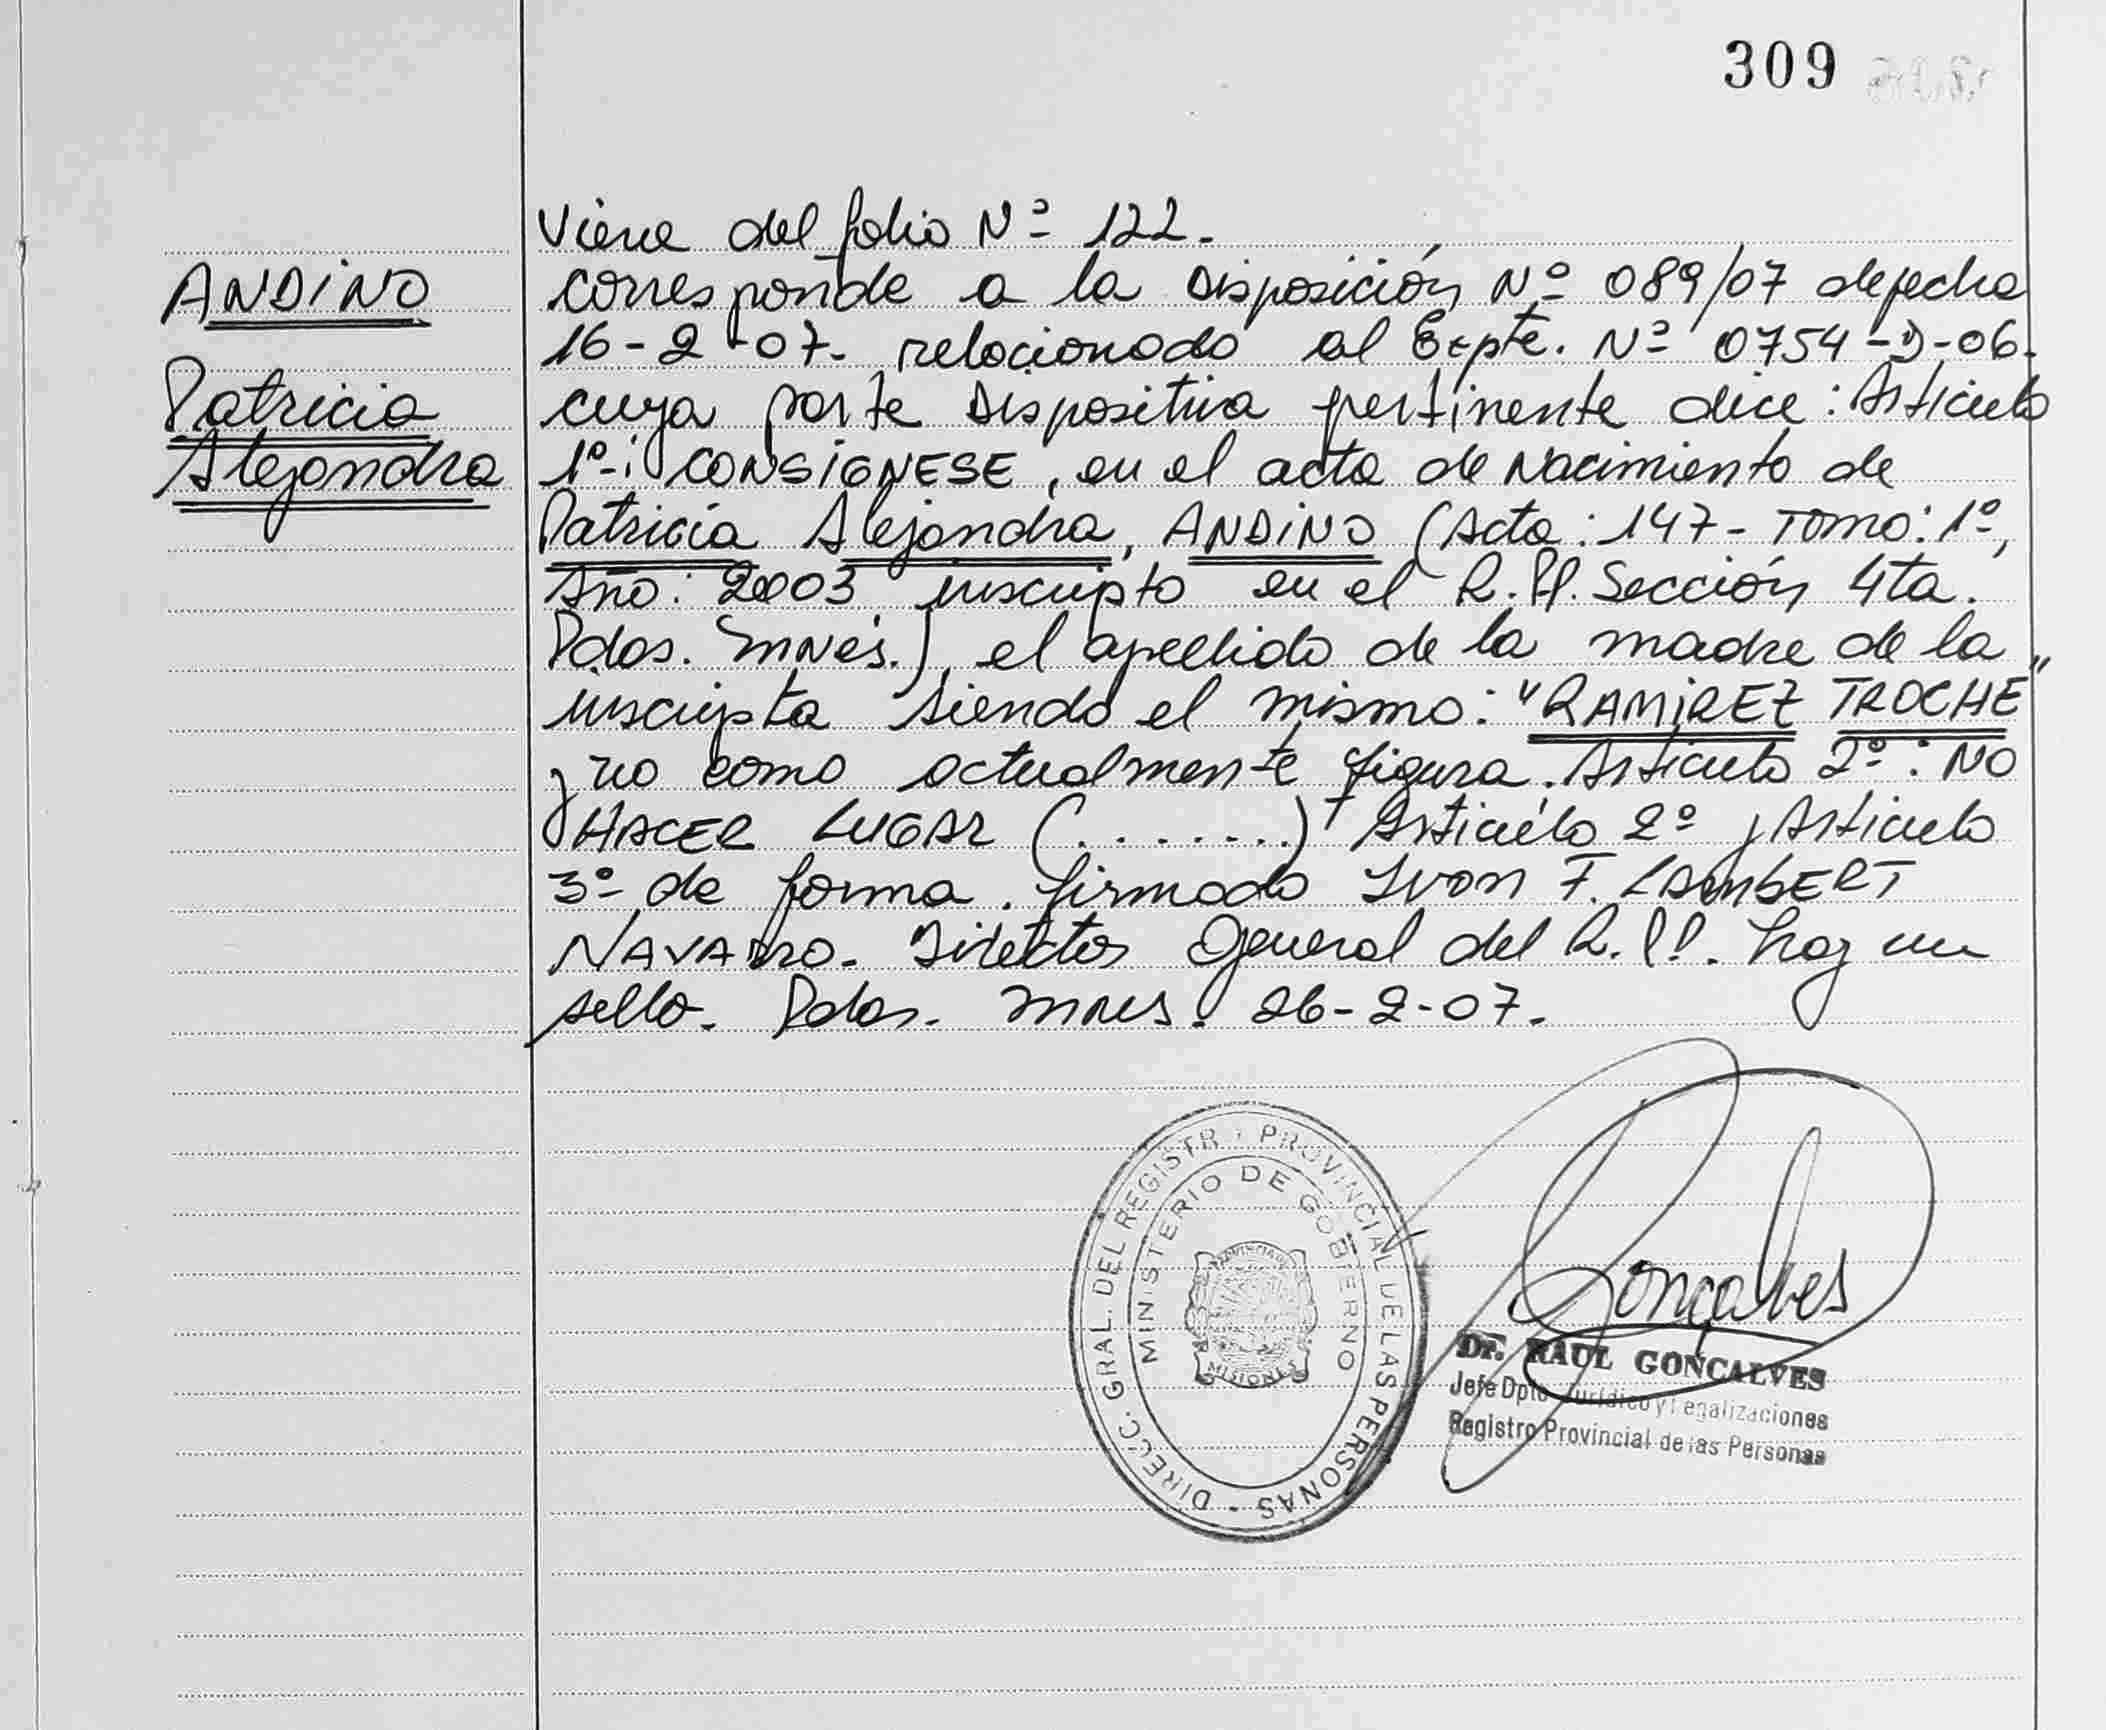 309
ANDINO
Patricia
Alejandra
Viene del folio Nº 122.-
corresponde a la Disposición Nº 089/07 de fecha
16-2-07- relacionado al Expte. Nº 0754-D-06.
cuya parte Dispositiva pertinente dice: Artículo
1º-: CONSIGNESE, en el acta de Nacimiento de
Patricia Alejandra, ANDINO (Acta: 147- Tomo: 1º,
Año: 2003 inscripto en el R.P. Sección 4ta.
Pdas. Mnes.), el apellido de la madre de la
inscripta siendo el mismo: "RAMIREZ TROCHE"
y no como actualmente figura. Artículo 2º: NO
HACER LUGAR (.......) Artículo 2º y Artículo
3º de forma. firmado Ivon F. LAMBERT
NAVARRO. Director General del R.PP. hay un
sello. Pdas. Mnes. 26-2-07.
DIRECC. GRAL. DEL REGISTR PROVINCIAL DE LAS PERSONAS -
MINISTERIO DE GOBIERNO
PROVINCIA DE
MISIONES
Gonçalves
Dr. RAUL GONCALVES
Jefe Dpto Jurídico y Legalizaciones
Registro Provincial de las Personas